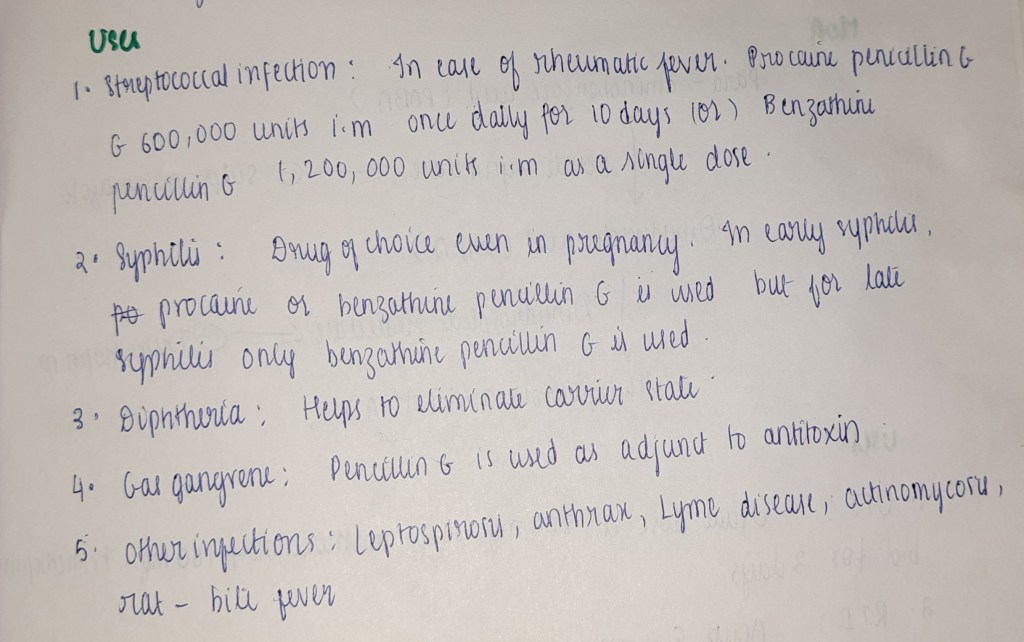 Uses
1. Streptococcal infection : In case of rheumatic fever. Procaine penicillin G
G 600,000 units i.m once daily for 10 days (or) Benzathine
penicillin G 1,200,000 units i.m as a single dose.
2. Syphilis : Drug of choice even in pregnancy. In early syphilis,
procaine or benzathine penicillin G is used but for late
syphilis only benzathine penicillin G is used.
3. Diphtheria : Helps to eliminate carrier state.
4. Gas gangrene : Penicillin G is used as adjunct to antitoxin
5. Other infections : Leptospirosis, anthrax, Lyme disease, actinomycosis,
rat - bite fever